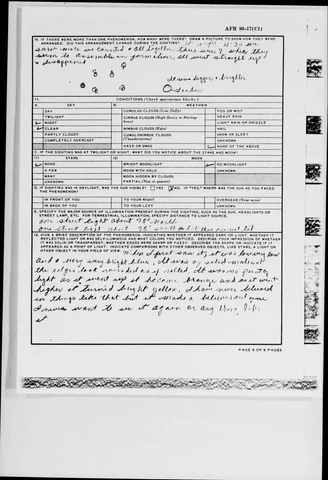 AFR 80-17(C1)
10. IF THERE WERE MORE THAN ONE PHENOMENON, HOW MANY WERE THERE? DRAW A PICTURE TO SHOW HOW THEY WERE
ARRANGED. DID THIS ARRANGEMENT CHANGE DURING THE SIGHTING?
we counted all together there were 7 when they
seem to assemble in formation, all went straight up
& disappeared
It was bigger & brighter
11. CONDITIONS (Check appropriate blocks.)
A. SKY WEATHER
DAY CUMULUS CLOUDS (Low fluffy) FOG OR MIST
TWILIGHT CIRRUS CLOUDS (High fleecy or Herringbone) HEAVY RAIN
NIGHT LIGHT RAIN OR DRIZZLE
CLEAR NIMBUS CLOUDS (Rain) HAIL
PARTLY CLOUDY CUMULONIMBUS CLOUDS (Thunderstorms) SNOW OR SLEET
COMPLETELY OVERCAST HAZE OR SMOG NONE OF THE ABOVE
C. IF THE SIGHTING WAS AT TWILIGHT OR NIGHT, WHAT DID YOU NOTICE ABOUT THE STARS AND MOON?
(1) STARS (2) MOON
NONE BRIGHT MOONLIGHT NO MOONLIGHT
A FEW MOON WITH HALO UNKNOWN
MANY MOON HIDDEN BY CLOUDS
UNKNOWN PARTIAL (New or quarter)
D. IF SIGHTING WAS IN DAYLIGHT, WAS THE SUN VISIBLE? YES NO IF "YES," WHERE WAS THE SUN AS YOU FACED
THE PHENOMENON?
IN FRONT OF YOU TO YOUR RIGHT OVERHEAD (Near noon)
IN BACK OF YOU TO YOUR LEFT UNKNOWN
E. SPECIFY THE MAJOR SOURCE OF ILLUMINATION PRESENT DURING THE SIGHTING, SUCH AS THE SUN, HEADLIGHTS OR
STREET LAMP, ETC. FOR TERRESTRIAL ILLUMINATION, SPECIFY DISTANCE TO LIGHT SOURCE.
one street light about 75' north
one street light about 75' south
12. GIVE A BRIEF DESCRIPTION OF THE PHENOMENON, INDICATING WHETHER IT APPEARED DARK OR LIGHT, WHETHER IT
REFLECTED LIGHT OR WAS SELF-LUMINOUS AND WHAT COLORS WERE NOTICED. DESCRIBE YOUR IMPRESSION OF WHETHER
IT WAS SOLID OR TRANSPARENT, WHETHER EDGES WERE SHARP OR FUZZY. DESCRIBE THE SHAPE OR INDICATE IF IT
APPEARED AS A POINT OF LIGHT. INDICATE COMPARISONS WITH OTHER OBSERVED OBJECTS, LIKE STARS, A LIGHT OR
OTHER OBJECT IN YOUR FIELD OF VIEW.
When I first saw it, it was low
and a very very bright blue, it was of solid material
the edges look rounded as if rolled. It was no point of
light as it went up it became orange and as it went
higher it turned bright yellow, I have never believed
in things like that but it made a believer out of me
I never want to see it again or any thing like
it
PAGE 4 OF 5 PAGES